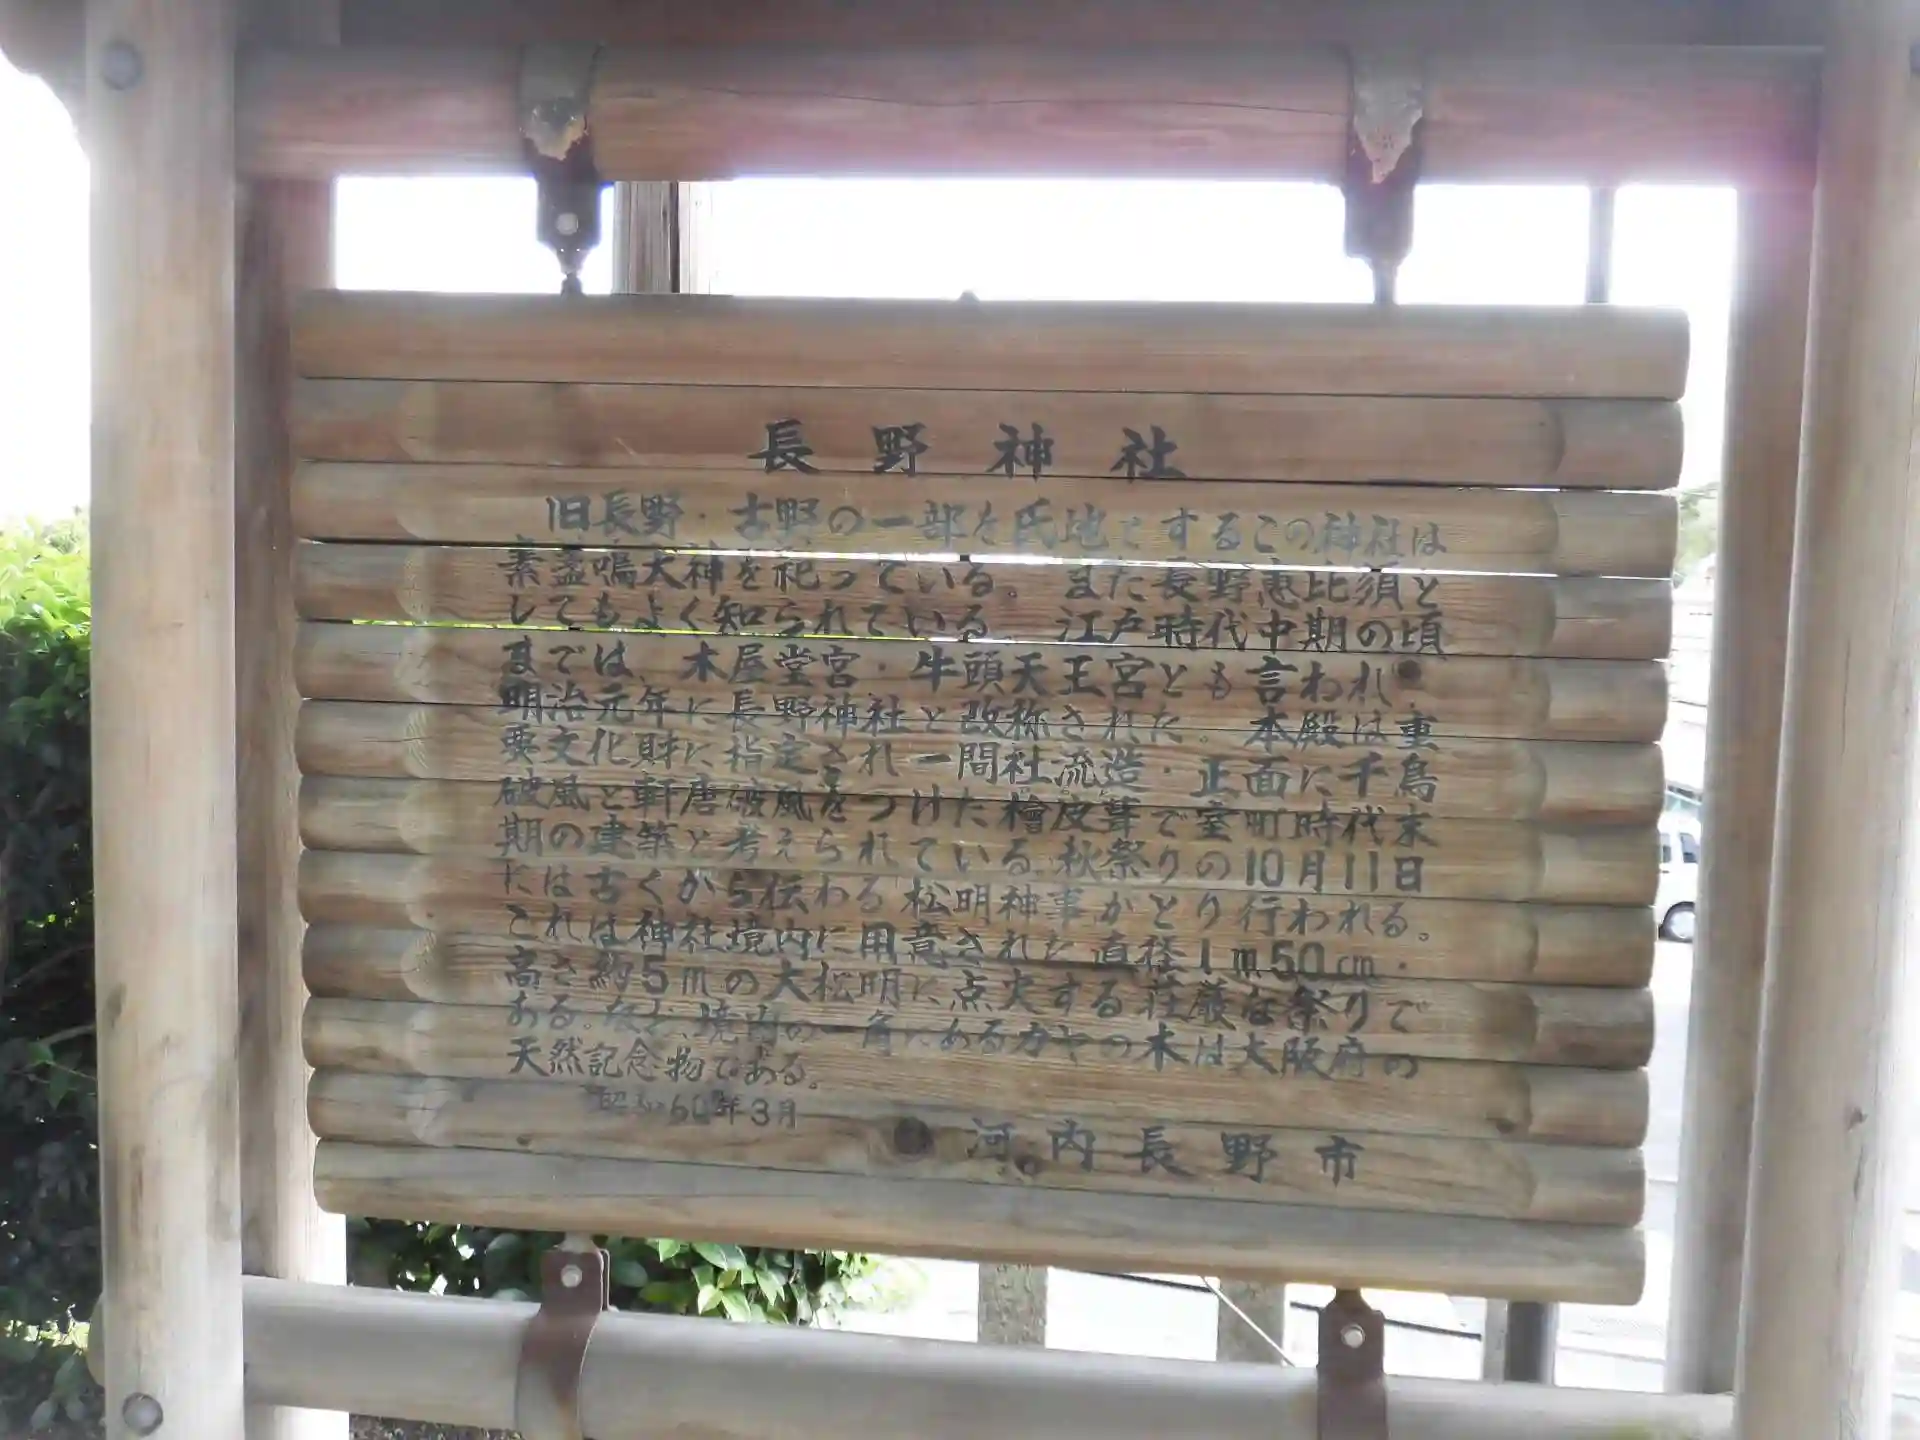 長野神社
旧長野・古野の一部を氏地とするこの神社は
素盞嗚大神を祀っている。また長野恵比須と
してもよく知られている。江戸時代中期の頃
までは、木屋堂宮・牛頭天王宮とも言われ
明治元年に長野神社と改称された。本殿は重
要文化財に指定され一間社流造・正面に千鳥
破風と軒唐破風をつけた檜皮葺で室町時代末
期の建築と考えられている。秋祭りの10月11日
には古くから伝わる松明神事がとり行われる。
これは神社境内に用意された直径1m50cm・
高さ約5mの大松明に点火する荘厳な祭りで
ある。なお、境内の一角にあるカヤの木は大阪府の
天然記念物である。
昭和60年3月
河内長野市